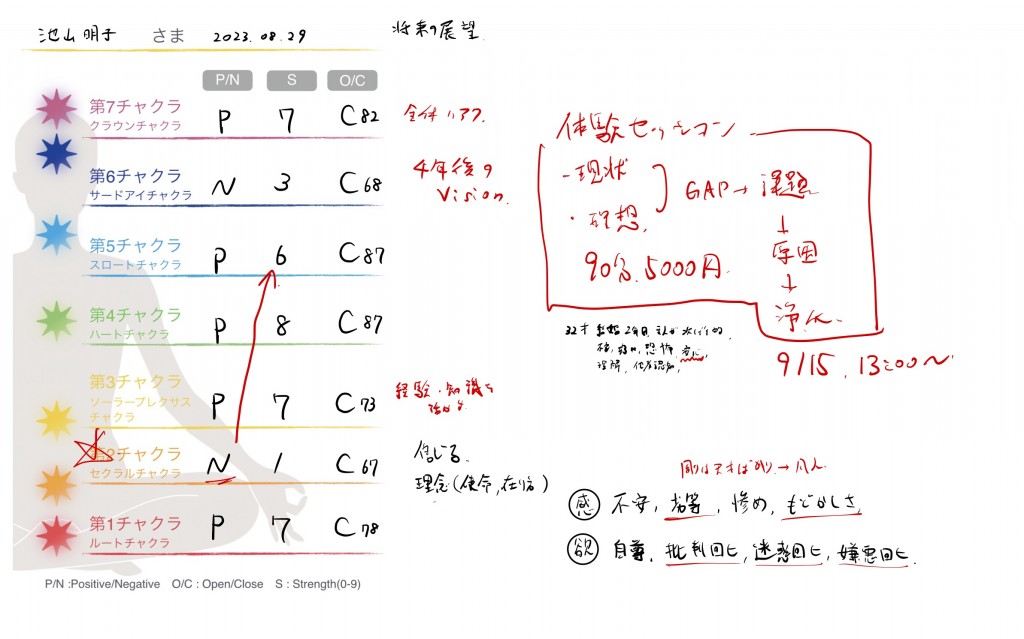 池山 明子 さま 2023.08.29
将来の展望
P/N S O/C
第7チャクラ
クラウンチャクラ
P 7 C82
全体
第6チャクラ
サードアイチャクラ
N 3 C68
4年後の
Vision
第5チャクラ
スロートチャクラ
P 6 C87
第4チャクラ
ハートチャクラ
P 8 C87
第3チャクラ
ソーラープレクサス
チャクラ
P 7 C73
経験・知識を
第2チャクラ
セクラルチャクラ
N 1 C67
信じる
理念(使命,在り方)
第1チャクラ
ルートチャクラ
P 7 C78
P/N :Positive/Negative O/C : Open/Close S : Strength(0-9)
体験セッション
-現状
・理想
GAP→課題
↓
原因
↓
浄化
90分,5000円
9/15, 13:00〜
32才 2年目
恐怖
誤解
→凡人
感 不安, 劣等, 惨め, もどかしさ
欲 自尊, 批判回ヒ, 迷惑回ヒ, 嫌悪回ヒ